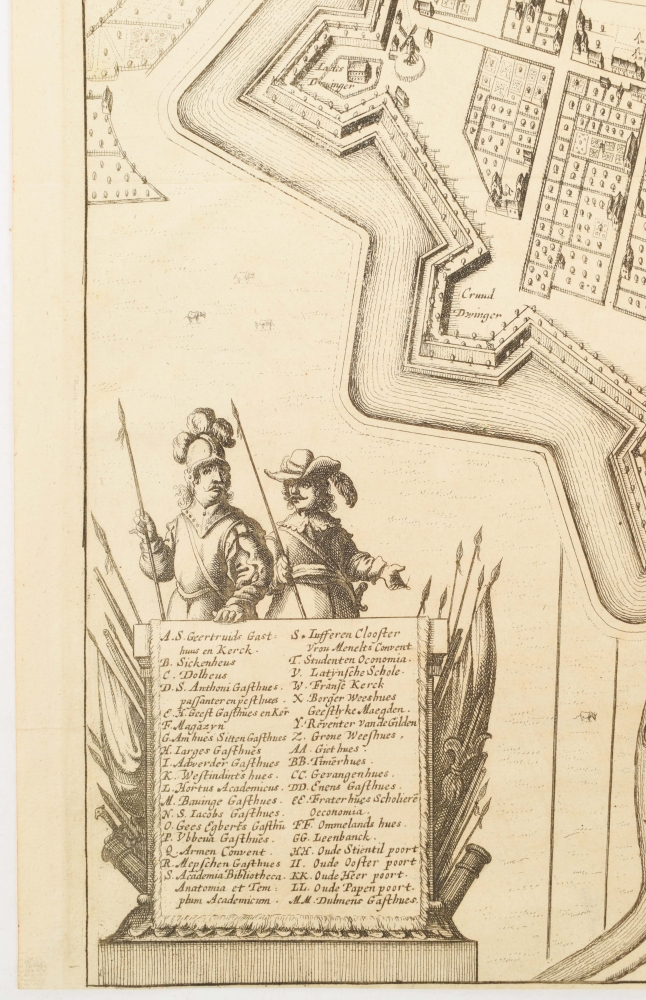 Lyks
Dwinger
Cruud
Dwinger
A. S. Geertruids Gast-
huus en Kerck.
B. Sickenheus
C. Dolheus
D. S. Anthoni Gasthues.
passanter en pesthues.
E. H. Geest Gasthues en Ker
F. Magazyn
G. Amhues Sitten Gasthues
H. Iarges Gasthues
I. Adverder Gasthues
K. Westindints hues.
L. Hortus Academicus.
M. Bauinge Gasthues.
N. S. Iacobs Gasthues.
O. Gees Egberts Gasthu
P. Vbbeua Gasthues.
Q. Armen Convent.
R. Mepschen Gasthues
S. Academia Bibliotheca.
Anatomia et Tem-
plum Academicum.
S* Iufferen Clooster
Vrou Menelts Convent
T. Studenten Oconomia.
V. Latynsche Schole.
W. Franse Kerck
X. Borger Weeshues
Geestlyke Maegden.
Y. Reventer van de Gilden
Z. Grone Weeshues.
AA. Giethues.
BB. Timerhues.
CC. Gevangenhues.
DD. Enens Gasthues.
EE. Fraterhues Scholiere
Oeconomia.
FF. Ommelands hues.
GG. Leenbanck.
HH. Oude Stientil poort
II. Oude Ooster poort
KK. Oude Heer poort.
LL. Oude Papen poort.
MM. Dulmens Gasthues.